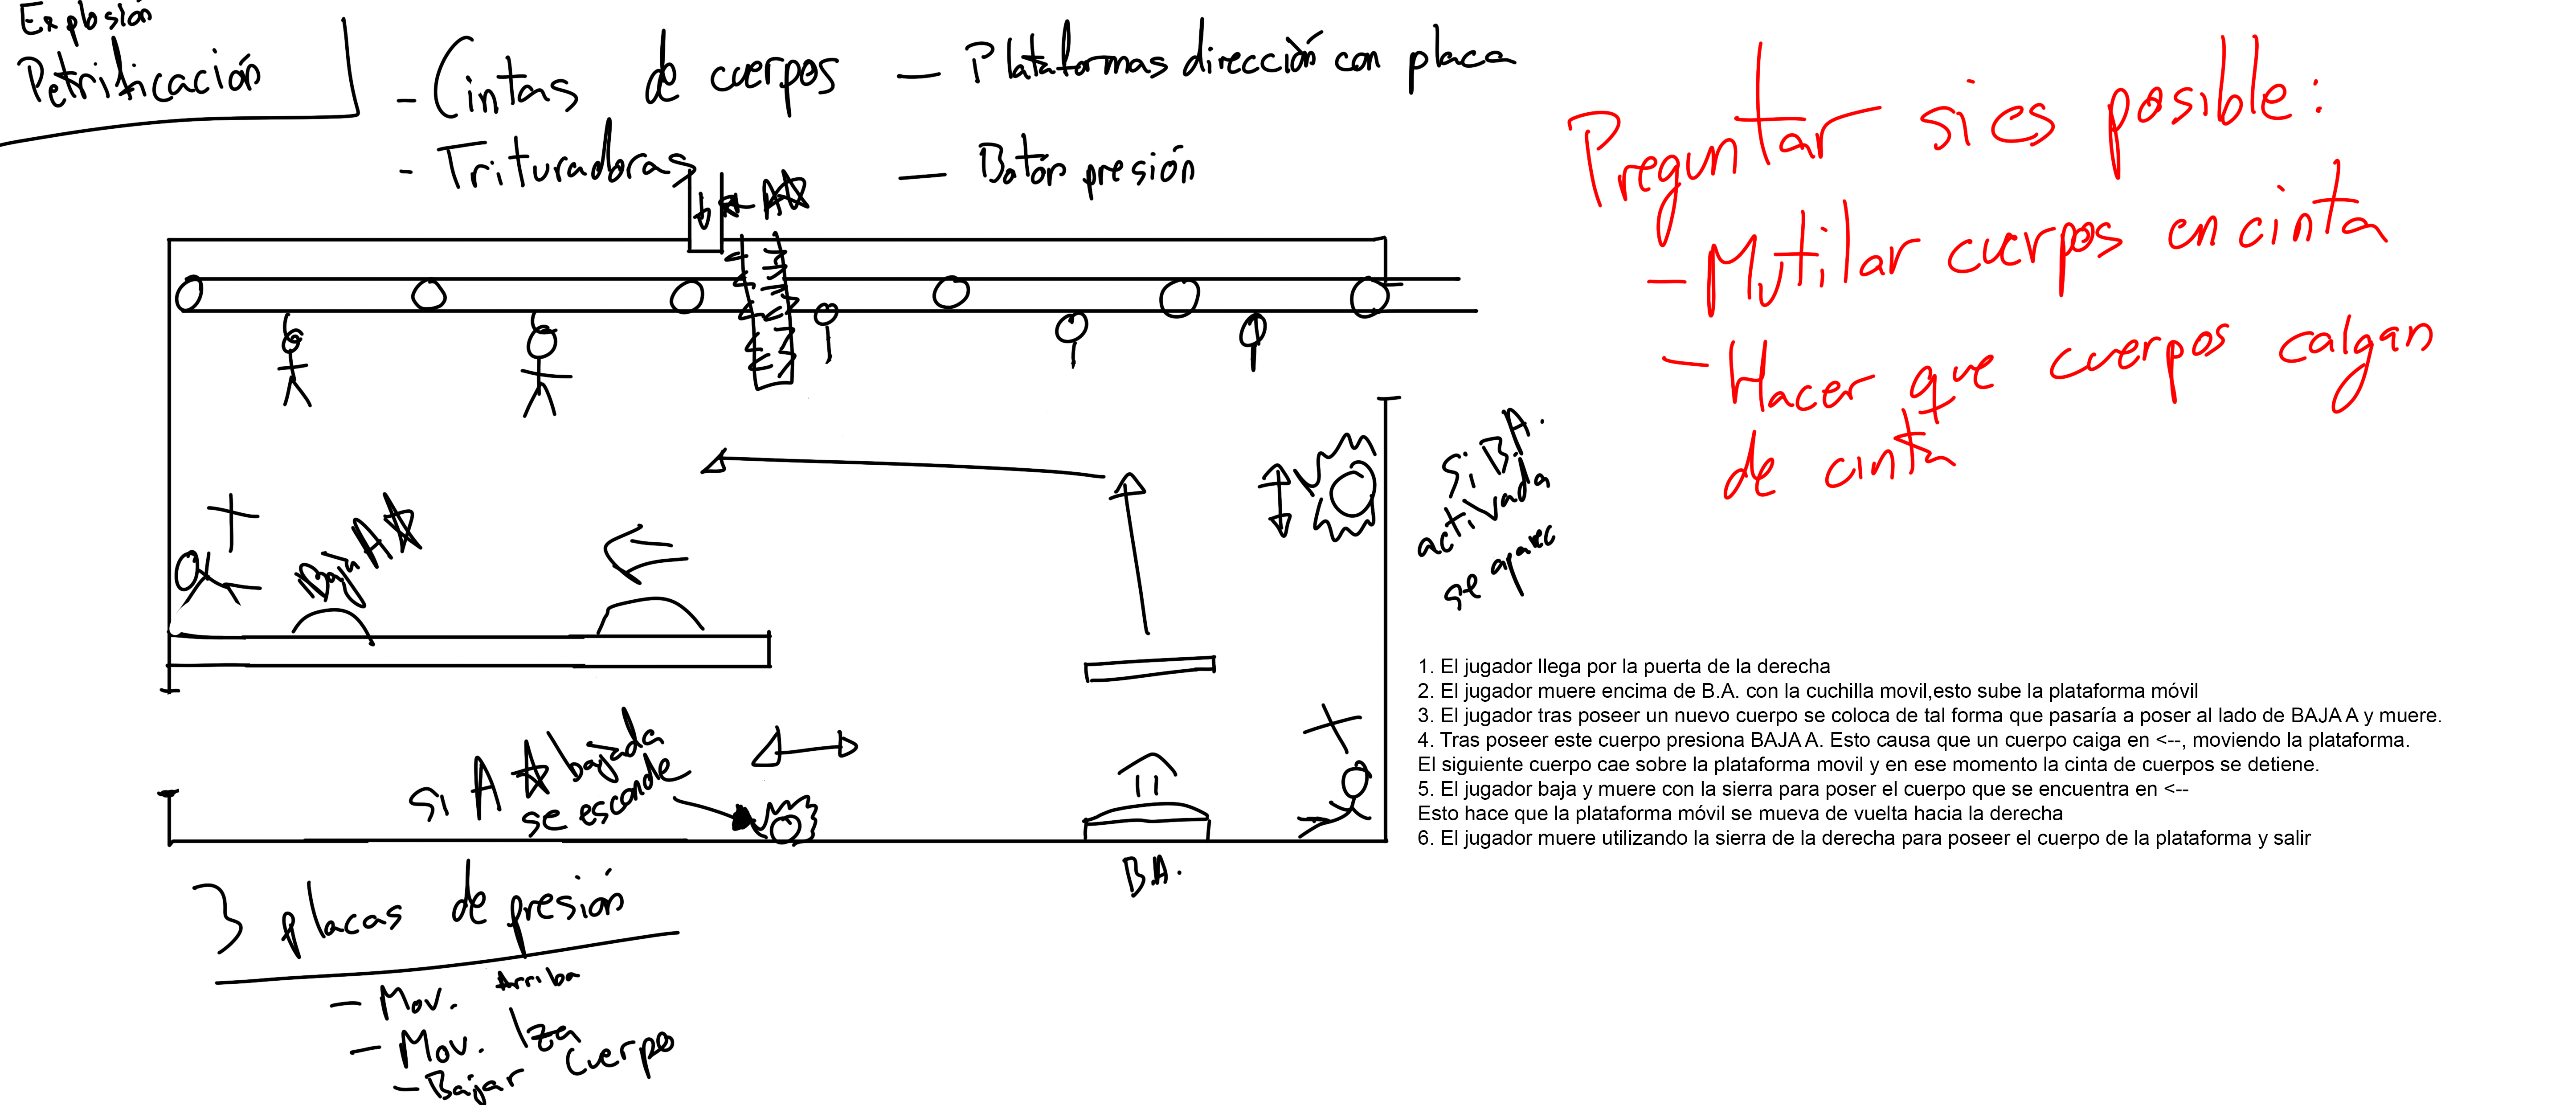 Explosión
Petrificación
- Cintas de cuerpos
- Trituradoras
- Plataformas dirección con placa
- Botón presión
Preguntar si es posible:
- Mutilar cuerpos en cinta
- Hacer que cuerpos calgan
de cinta
A☆
Baja A☆
Si B.A.
activada
se aparec
si A☆ bajada
se esconde
B.A.
1. El jugador llega por la puerta de la derecha
2. El jugador muere encima de B.A. con la cuchilla movil,esto sube la plataforma móvil
3. El jugador tras poseer un nuevo cuerpo se coloca de tal forma que pasaría a poser al lado de BAJA A y muere.
4. Tras poseer este cuerpo presiona BAJA A. Esto causa que un cuerpo caiga en <--, moviendo la plataforma.
El siguiente cuerpo cae sobre la plataforma movil y en ese momento la cinta de cuerpos se detiene.
5. El jugador baja y muere con la sierra para poser el cuerpo que se encuentra en <--
Esto hace que la plataforma móvil se mueva de vuelta hacia la derecha
6. El jugador muere utilizando la sierra de la derecha para poseer el cuerpo de la plataforma y salir
3 placas de presión
- Mov. Arriba
- Mov. Izq
- Bajar Cuerpo